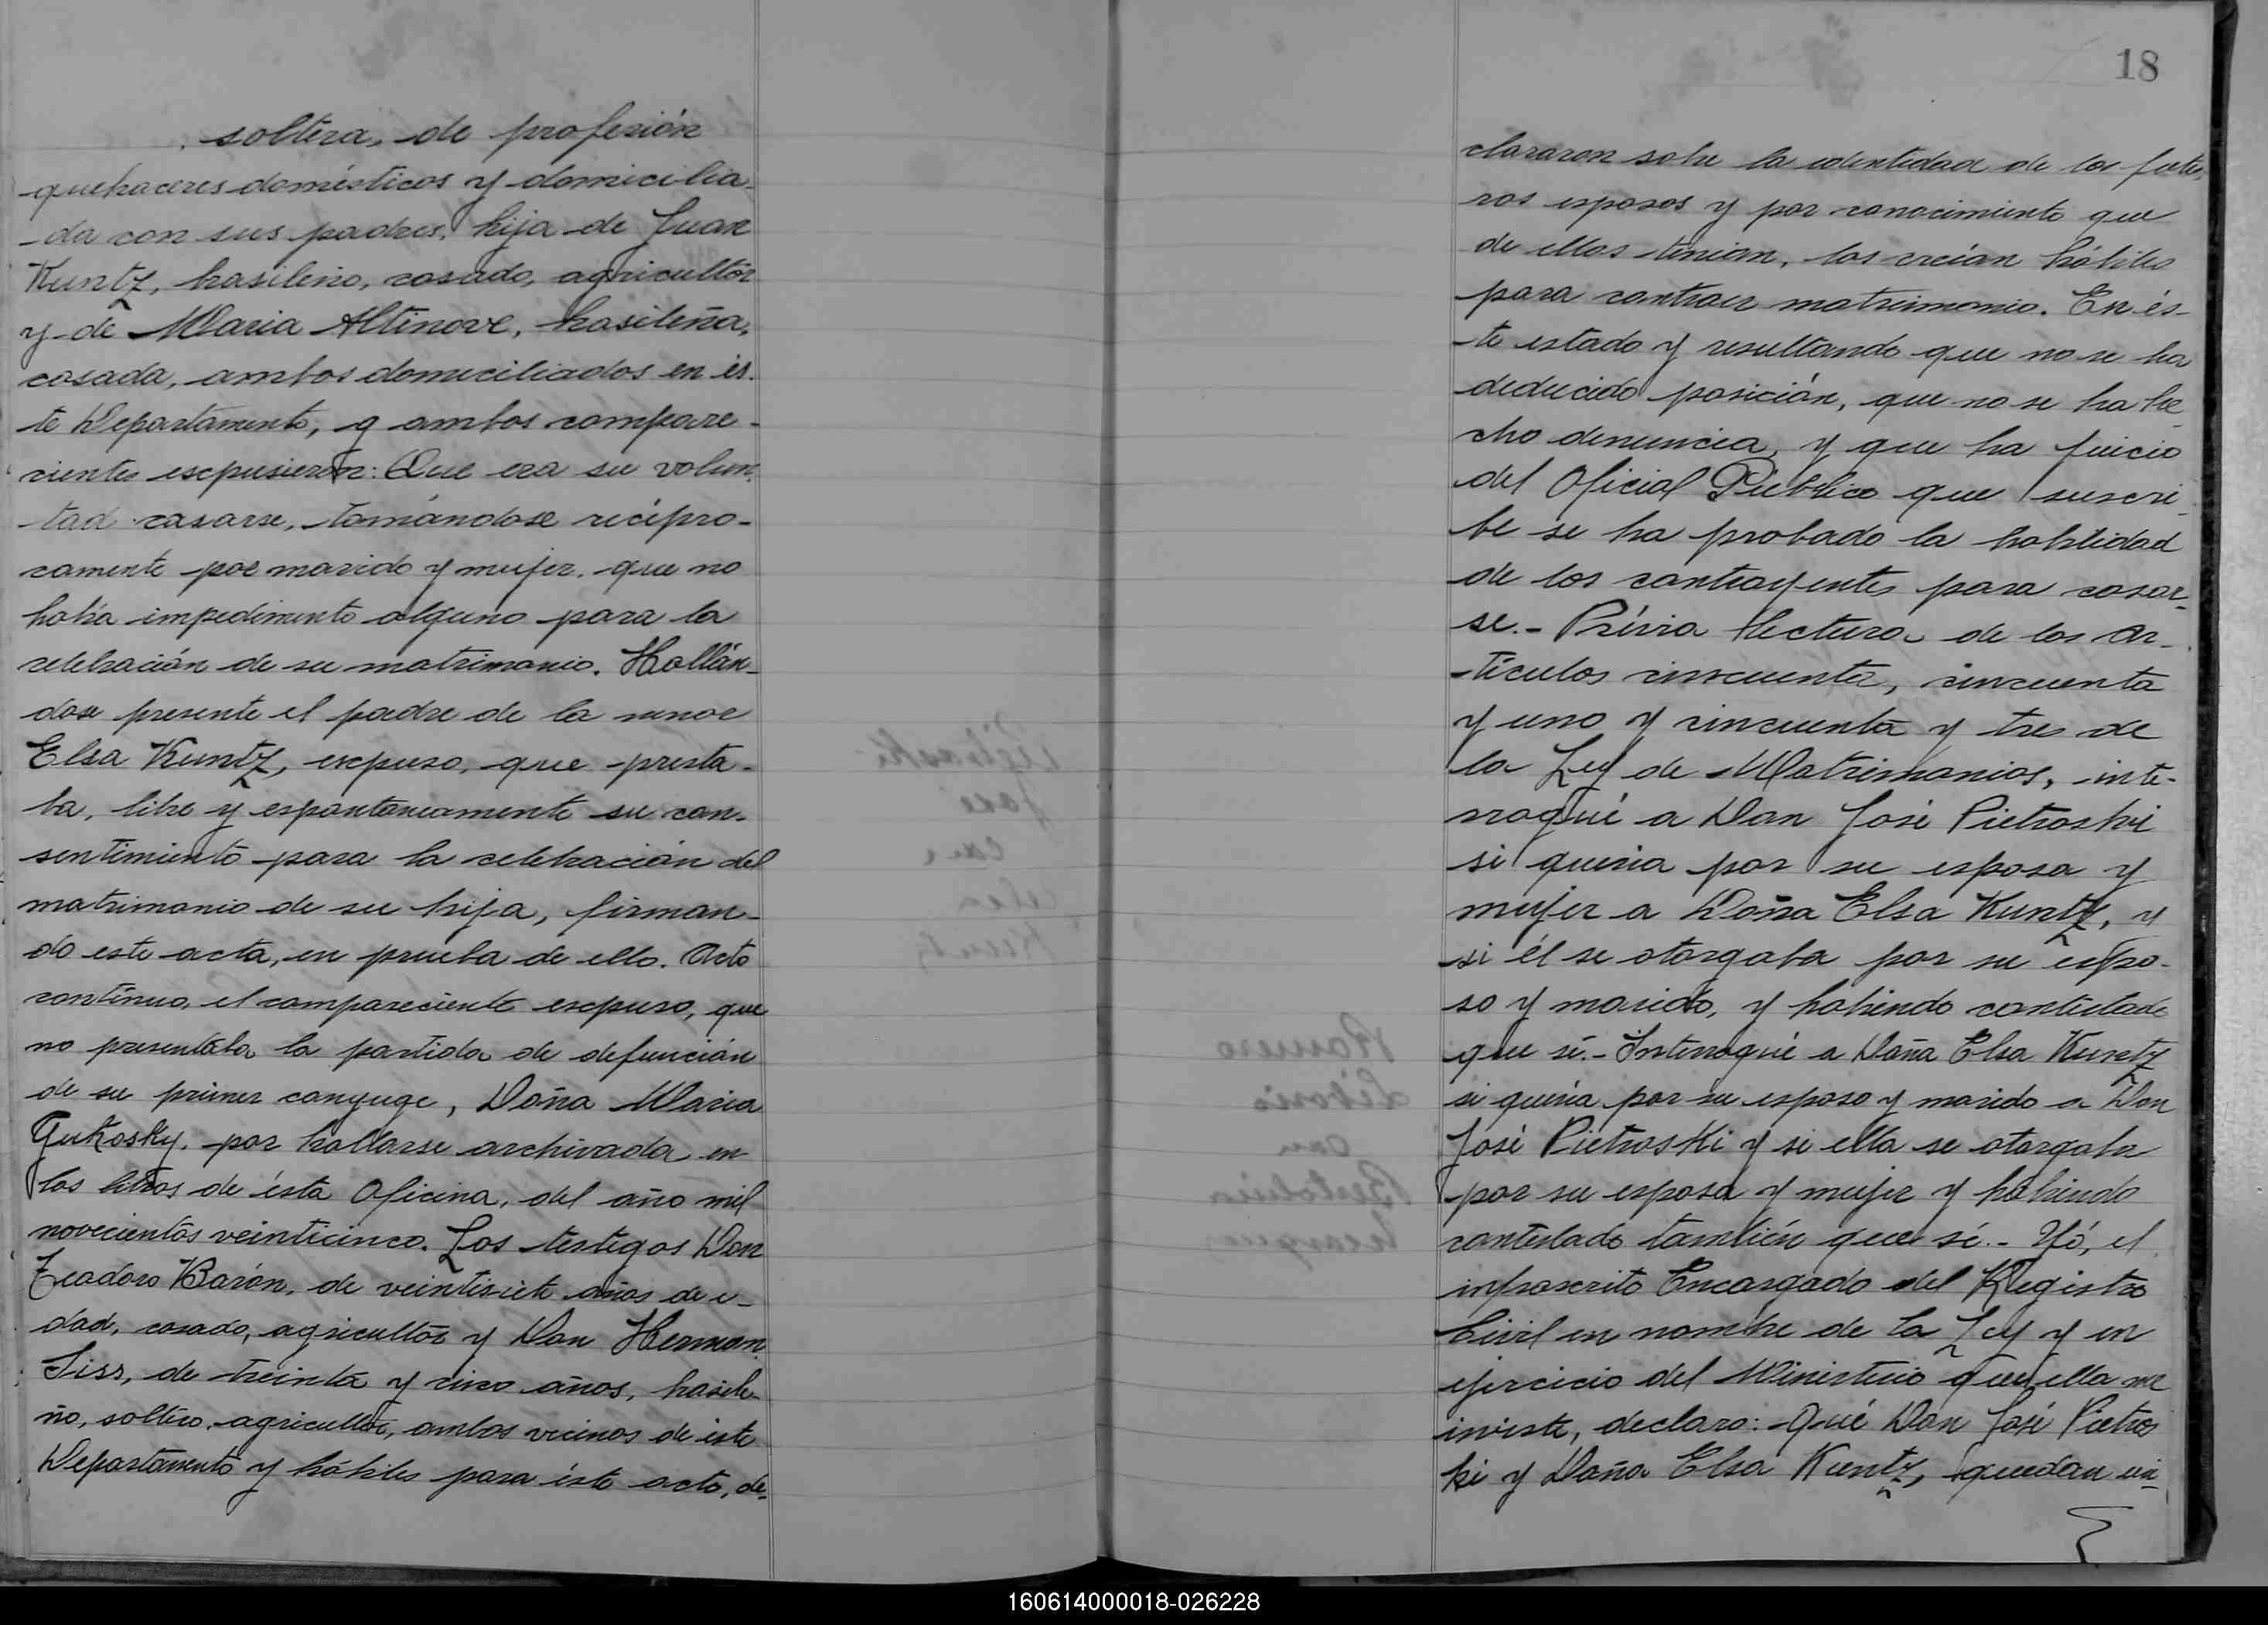 soltera, de profesión
quehaceres domésticos y domicilia-
da con sus padres, hija de Juan
Kuntz, brasileño, casado, agricultor
y de Maria Altinove, brasileña,
casada, ambos domiciliados en és-
te Departamento, y ambos compare-
cientes escpusieron: Que era su volun-
tad casarse, tomándose recípro-
camente por marido y mujer, que no
había impedimento alguno para la
celebración de su matrimonio. Hallán-
dose presente el padre de la menor
Elsa Kuntz, escpuso, que presta-
ba, libre y espontaneamente su con-
sentimiento para la celebración del
matrimonio de su hija, firman-
do este acta, en prueba de ello. Acto
contínuo, el compareciente escpuso, que
no presentaba la partida de defunción
de su primer conyuge, Doña Maria
Gutkosky, por hallarse archivada en
los libros de ésta Oficina, del año mil
novecientos veinticinco. Los testigos Don
Teodoro Barón, de veintisiete años de e-
dad, casado, agricultor y Don Herman
Siss, de treinta y cinco años, brasile-
ño, soltero, agricultor, ambos vecinos de éste
Departamento y hábiles para éste acto, de-
18
clararon sobre la identidad de los futu-
ros esposos y por conocimiento que
de ellos tenian, los creían hábiles
para contraer matrimonio. En és-
te estado y resultando que no se ha
deducido posición, que no se ha he-
cho denuncia, y que ha juicio
del Oficial Público que suscri-
be se ha probado la habilidad
de los contrayentes para casar-
se.- Prévia lectura de los ar-
tículos cincuenta, cincuenta
y uno y cincuenta y tres de
la Ley de Matrimonios, inte-
rrogué a Don José Pietroski
si queria por su esposa y
mujer a Doña Elsa Kuntz, y
si él se otorgaba por su espo-
so y marido, y habiendo contestado
que sí.- Interrogué a Doña Elsa Kuntz
si quería por su esposo y marido a Don
José Pietroski y si ella se otorgaba
por su esposa y mujer y habiendo
contestado también que sí.- Yó, el
infrascrito Encargado del Registro
Civil en nombre de la Ley y en
ejercicio del Ministerio que ella me
inviste, declaro: Qué Don José Pietros
ki y Doña Elsa Kuntz, quedan uni-
160614000018-026228